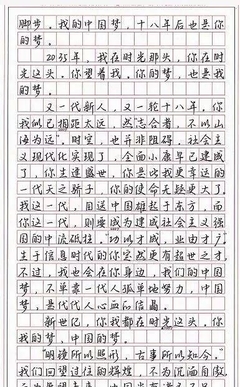 脚步。我的中国梦，十八年后也是你
的梦。
2035年，我在时光那头，你在时
光这头。你望着我，你的梦，也是我
的梦。
又一代新人，又一轮十八年。你
我似已相距太远，然"志合者，不以山
海为远"。时空，也并非阻碍。社会主
义现代化实现了，全面小康早已建成
了，你生逢盛世，你是比我更幸运的
一代天之骄子，你的使命无疑更大了。
我这一代，目送中国雄起于东方，而
你这一代，则要成为建成社会主义强
国的中流砥柱。"功以才成，业由才广"
生于信息时代的你实然更有超世之才，
不过，我也会在你身边，我们的中国
梦，不单靠一代人孤单地努力，中国
梦，是代代人心血的结晶。
新世纪，你我都在时光这头，你
我的梦，中国的梦。
"明镜所以照形，古事所以知今。"
我们回望过往的辉煌，不为沉湎自傲